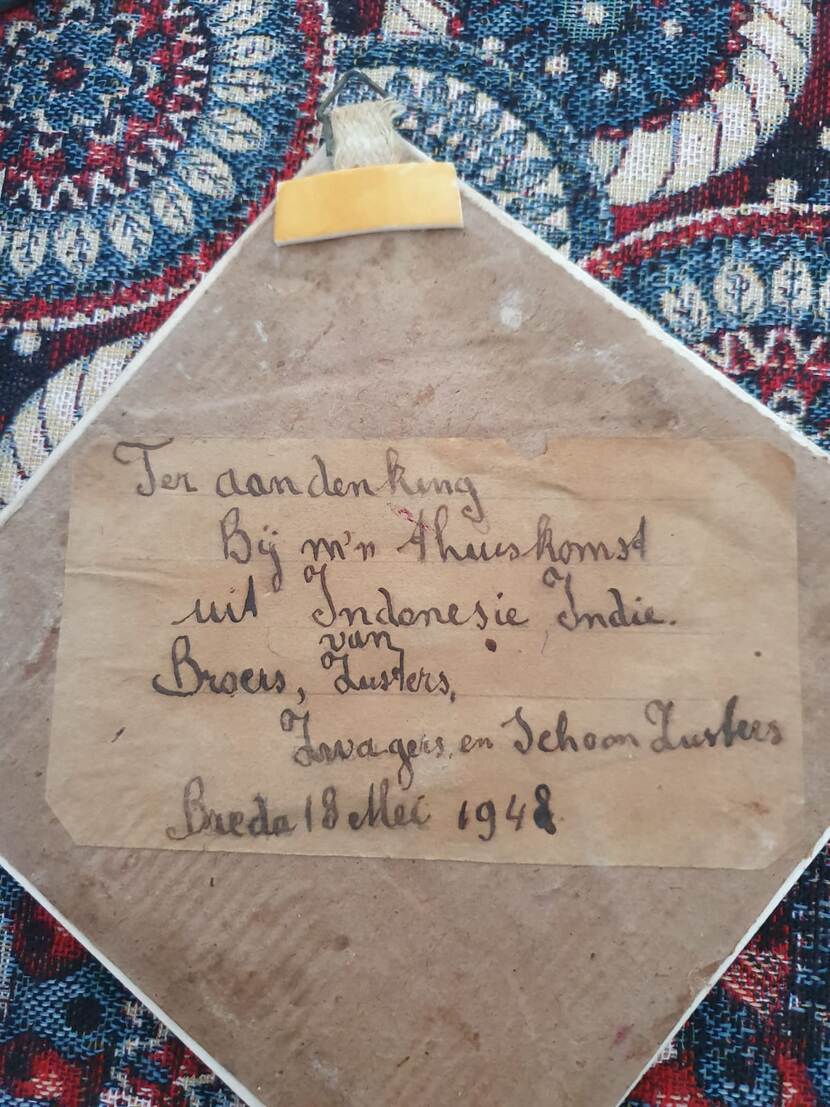 Ter aandenking
Bij m'n thuiskomst
uit Indonesie Indie.
van
Broers, Zusters,
Zwagers, en Schoon Zusters
Breda 18 Mei 1948